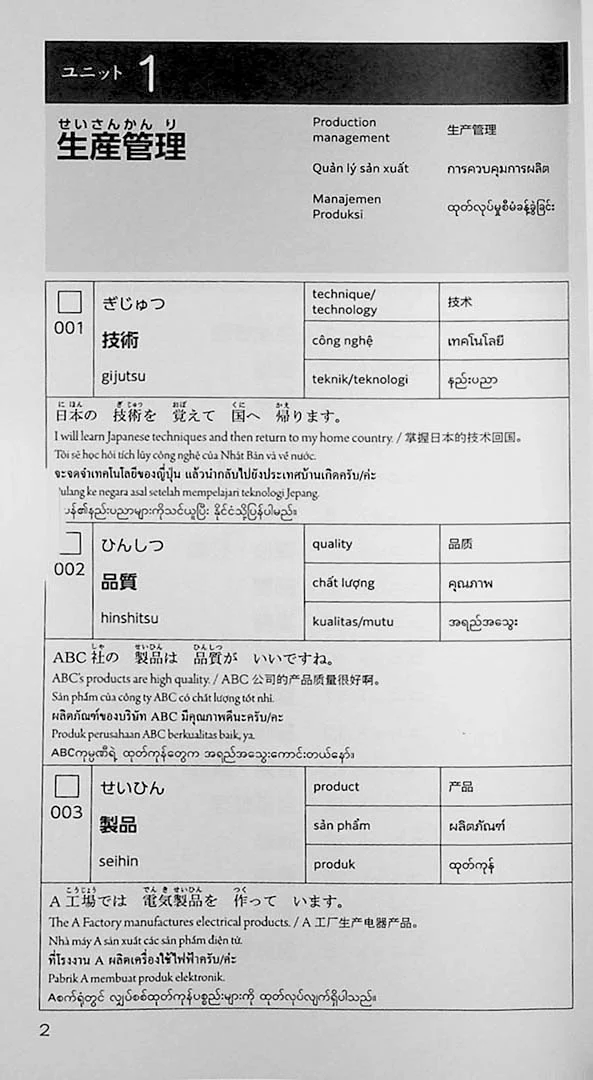 ユニット 1
せいさんかんり
生産管理
Production management
生产管理
Quản lý sản xuất
การควบคุมการผลิต
Manajemen Produksi
ထုတ်လုပ်မှုစီမံခန့်ခွဲခြင်း
001
ぎじゅつ
技術
gijutsu
technique/
technology
技术
công nghệ
เทคโนโลยี
teknik/teknologi
နည်းပညာ
にほん ぎじゅつ おぼ くに かえ
日本の 技術を 覚えて 国へ 帰ります。
I will learn Japanese techniques and then return to my home country. / 掌握日本的技术回国。
Tôi sẽ học hỏi tích lũy công nghệ của Nhật Bản và về nước.
จะจดจำเทคโนโลยีของญี่ปุ่น แล้วนำกลับไปยังประเทศบ้านเกิดครับ/ค่ะ
ulang ke negara asal setelah mempelajari teknologi Jepang.
ပန်၏နည်းပညာများကိုသင်ယူပြီး နိုင်ငံသို့ပြန်ပါမည်။
002
ひんしつ
品質
hinshitsu
quality
品质
chất lượng
คุณภาพ
kualitas/mutu
အရည်အသွေး
しゃ せいひん ひんしつ
ABC 社の 製品は 品質が いいですね。
ABC's products are high quality. / ABC 公司的产品质量很好啊。
Sản phẩm của công ty ABC có chất lượng tốt nhỉ.
ผลิตภัณฑ์ของบริษัท ABC มีคุณภาพดีนะครับ/คะ
Produk perusahaan ABC berkualitas baik, ya.
ABCကုမ္ပဏီရဲ့ ထုတ်ကုန်တွေက အရည်အသွေးကောင်းတယ်နော်။
003
せいひん
製品
seihin
product
产品
sản phẩm
ผลิตภัณฑ์
produk
ထုတ်ကုန်
こうじょう でんきせいひん つく
A 工場では 電気製品を 作って います。
The A Factory manufactures electrical products. / A 工厂生产电器产品。
Nhà máy A sản xuất các sản phẩm điện tử.
ที่โรงงาน A ผลิตเครื่องใช้ไฟฟ้าครับ/ค่ะ
Pabrik A membuat produk elektronik.
Aစက်ရုံတွင် လျှပ်စစ်ထုတ်ကုန်ပစ္စည်းများကို ထုတ်လုပ်လျက်ရှိပါသည်။
2